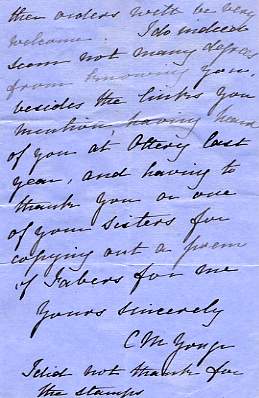 then orders will be very
welcome. I do indeed
seem not many degrees
from knowing you,
besides the links you
mention, having heard
of you at Ottery last
year, and having to
thank you or one
of your sisters for
copying out a poem
of Fabers for me
Yours sincerely
C M Yonge
I did not thank for
the stamps